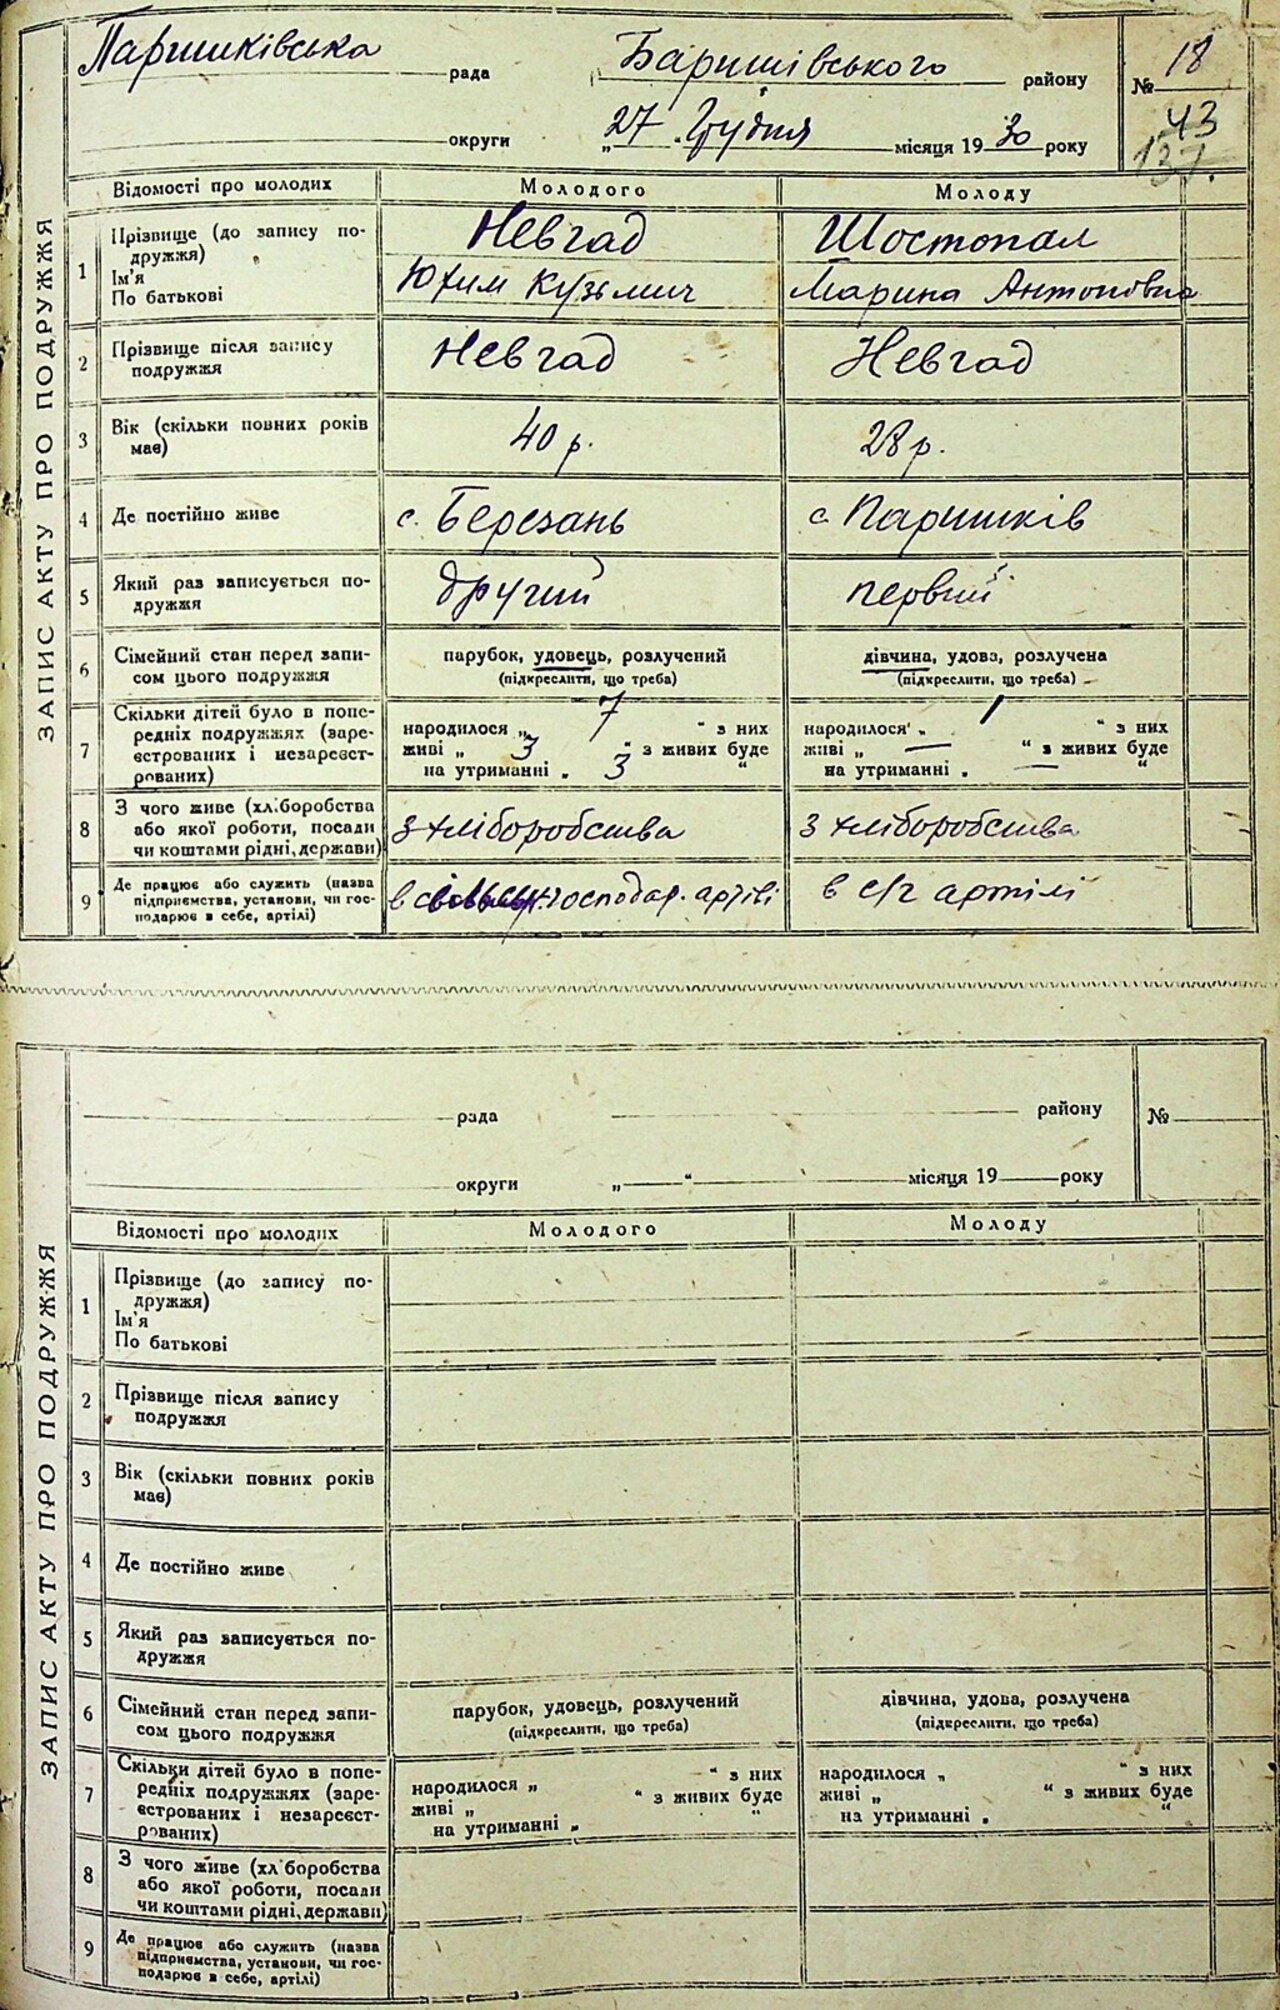 ЗАПИС АКТУ ПРО ПОДРУЖЖЯ
Паришківська рада Баришівського району № 18
округи „27" Грудня місяця 1930 року 43
137.
Відомості про молодих Молодого Молоду
1 Прізвище (до запису по- Невгад Шостопал
дружжя)
Ім'я Юхим Кузьмич Марина Антоновна
По батькові
2 Прізвище після запису Невгад Невгад
подружжя
3 Вік (скільки повних років 40 р. 28 р.
має)
4 Де постійно живе с. Березань с Паришків
5 Який раз записується по- другий первий
дружжя
6 Сімейний стан перед запи- парубок, удовець, розлучений дівчина, удова, розлучена
сом цього подружжя (підкреслити, що треба) (підкреслити, що треба)
7 Скільки дітей було в попе- народилося „ 7 " з них народилося „ " з них
редніх подружжях (заре- живі „ 3 " з живих буде живі „ — " з живих буде
єстрованих і незареєст- на утриманні „ 3 " на утриманні „ — "
рованих)
8 З чого живе (хліборобства З хліборобства З хліборобства
або якої роботи, посади
чи коштами рідні, держави)
9 Де працює або служить (назва в господар. артілі в с/г артілі
підприємства, установи, чи гос-
подарює в себе, артілі)
ЗАПИС АКТУ ПРО ПОДРУЖЖЯ
рада району №
округи „ " місяця 19 року
Відомості про молодих Молодого Молоду
1 Прізвище (до запису по-
дружжя)
Ім'я
По батькові
2 Прізвище після запису
подружжя
3 Вік (скільки повних років
має)
4 Де постійно живе
5 Який раз записується по-
дружжя
6 Сімейний стан перед запи- парубок, удовець, розлучений дівчина, удова, розлучена
сом цього подружжя (підкреслити, що треба) (підкреслити, що треба)
7 Скільки дітей було в попе- народилося „ " з них народилося „ " з них
редніх подружжях (заре- живі „ " з живих буде живі „ " з живих буде
єстрованих і незареєст- на утриманні „ " на утриманні „ "
рованих)
8 З чого живе (хліборобства
або якої роботи, посади
чи коштами рідні, держави)
9 Де працює або служить (назва
підприємства, установи, чи гос-
подарює в себе, артілі)